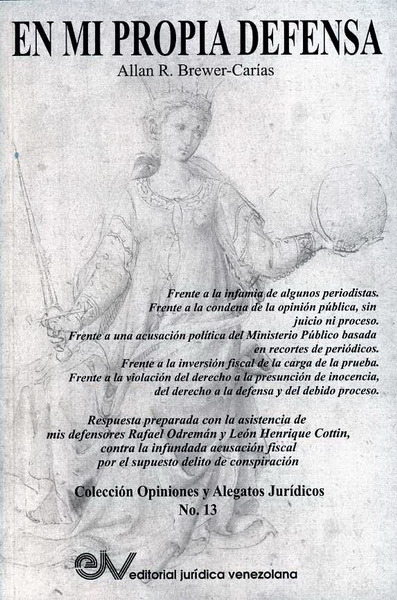 EN MI PROPIA DEFENSA
Allan R. Brewer-Carías
Frente a la infamia de algunos periodistas.
Frente a la condena de la opinión pública, sin
juicio ni proceso.
Frente a una acusación política del Ministerio Público basada
en recortes de periódicos.
Frente a la inversión fiscal de la carga de la prueba.
Frente a la violación del derecho a la presunción de inocencia,
del derecho a la defensa y del debido proceso.
Respuesta preparada con la asistencia de
mis defensores Rafael Odremán y León Henrique Cottin,
contra la infundada acusación fiscal
por el supuesto delito de conspiración
Colección Opiniones y Alegatos Jurídicos
No. 13
EJV editorial jurídica venezolana